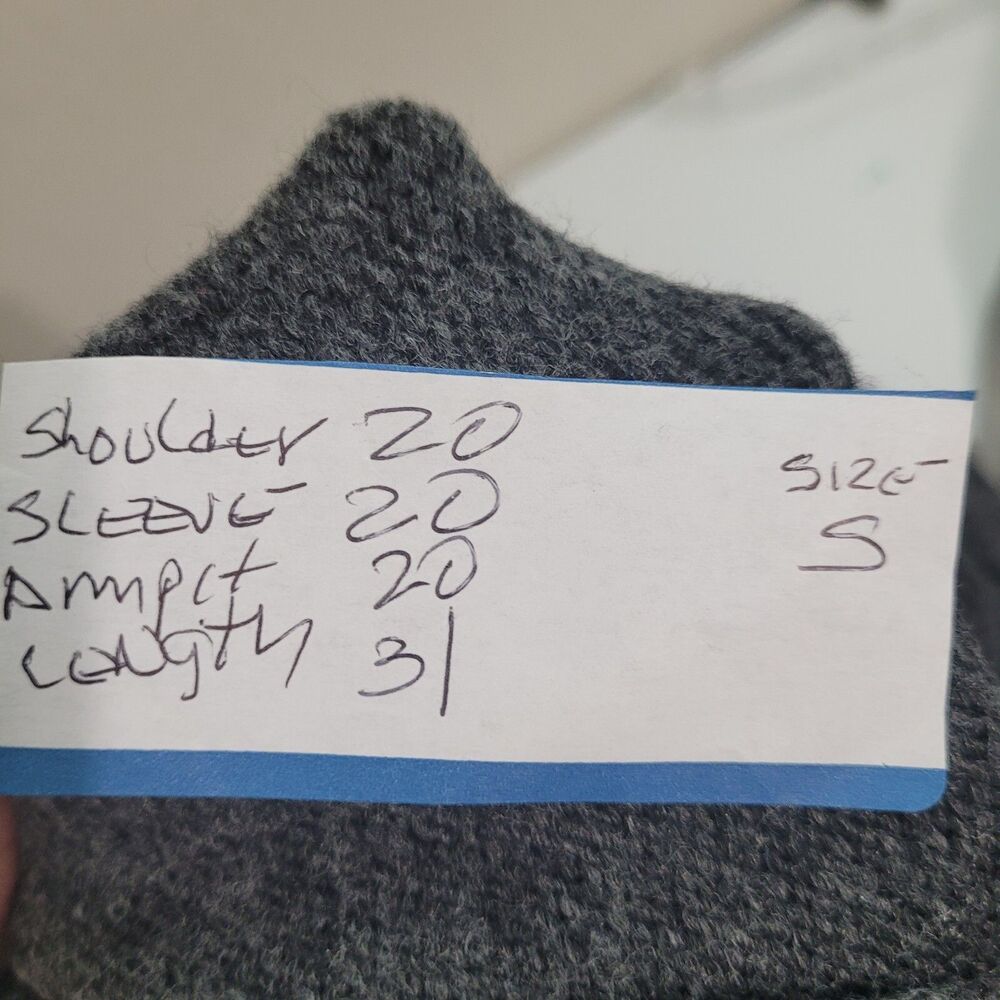 Shoulder 20
SLEEVE 20
Armpit 20
Length 31
SIZE
S